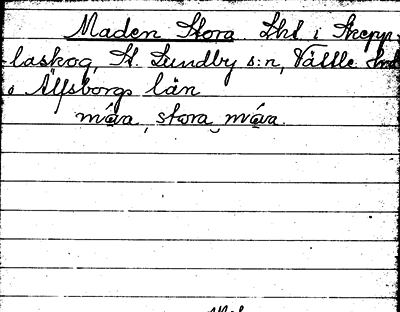 Maden Stora. Lht i Skepp-
laskog, St. Lundby s:n, Vättle hrd
i Älfsborgs län
måva, stora måva.